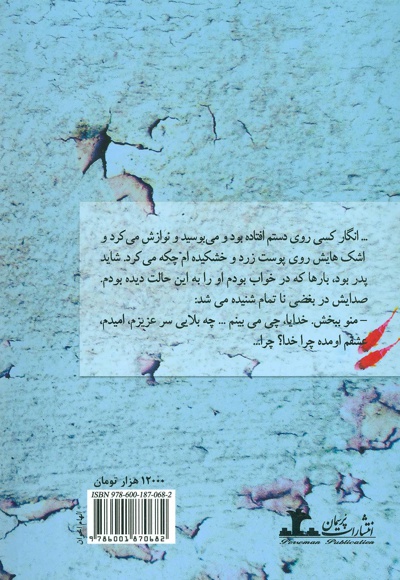 ... انگار کسی روی دستم افتاده بود و می‌بوسید و نوازش می‌کرد و
اشک هایش روی پوست زرد و خشکیده ام چکه می‌کرد. شاید
پدر بود، بارها که در خواب بودم او را به این حالت دیده بودم.
صدایش در بغضی نا تمام شنیده می شد:
- منو ببخش. خدایا، چی می بینم ... چه بلایی سر عزیزم، امیدم،
عشقم اومده چرا خدا؟ چرا...
۱۲۰۰۰ هزار تومان
ISBN 978-600-187-068-2
9 786001 870682
انتشارات پریمان
Perceman Publication